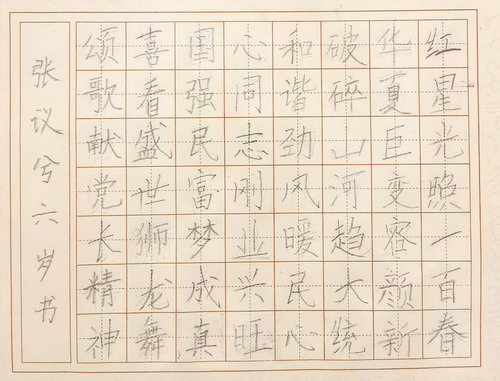 红星光照一百春
华夏巨变容颜新
破碎山河趋大统
和谐劲风暖民心
心同志刚业兴旺
国强民富梦成真
喜看盛世狮龙舞
颂歌献党长精神
张议兮六岁书